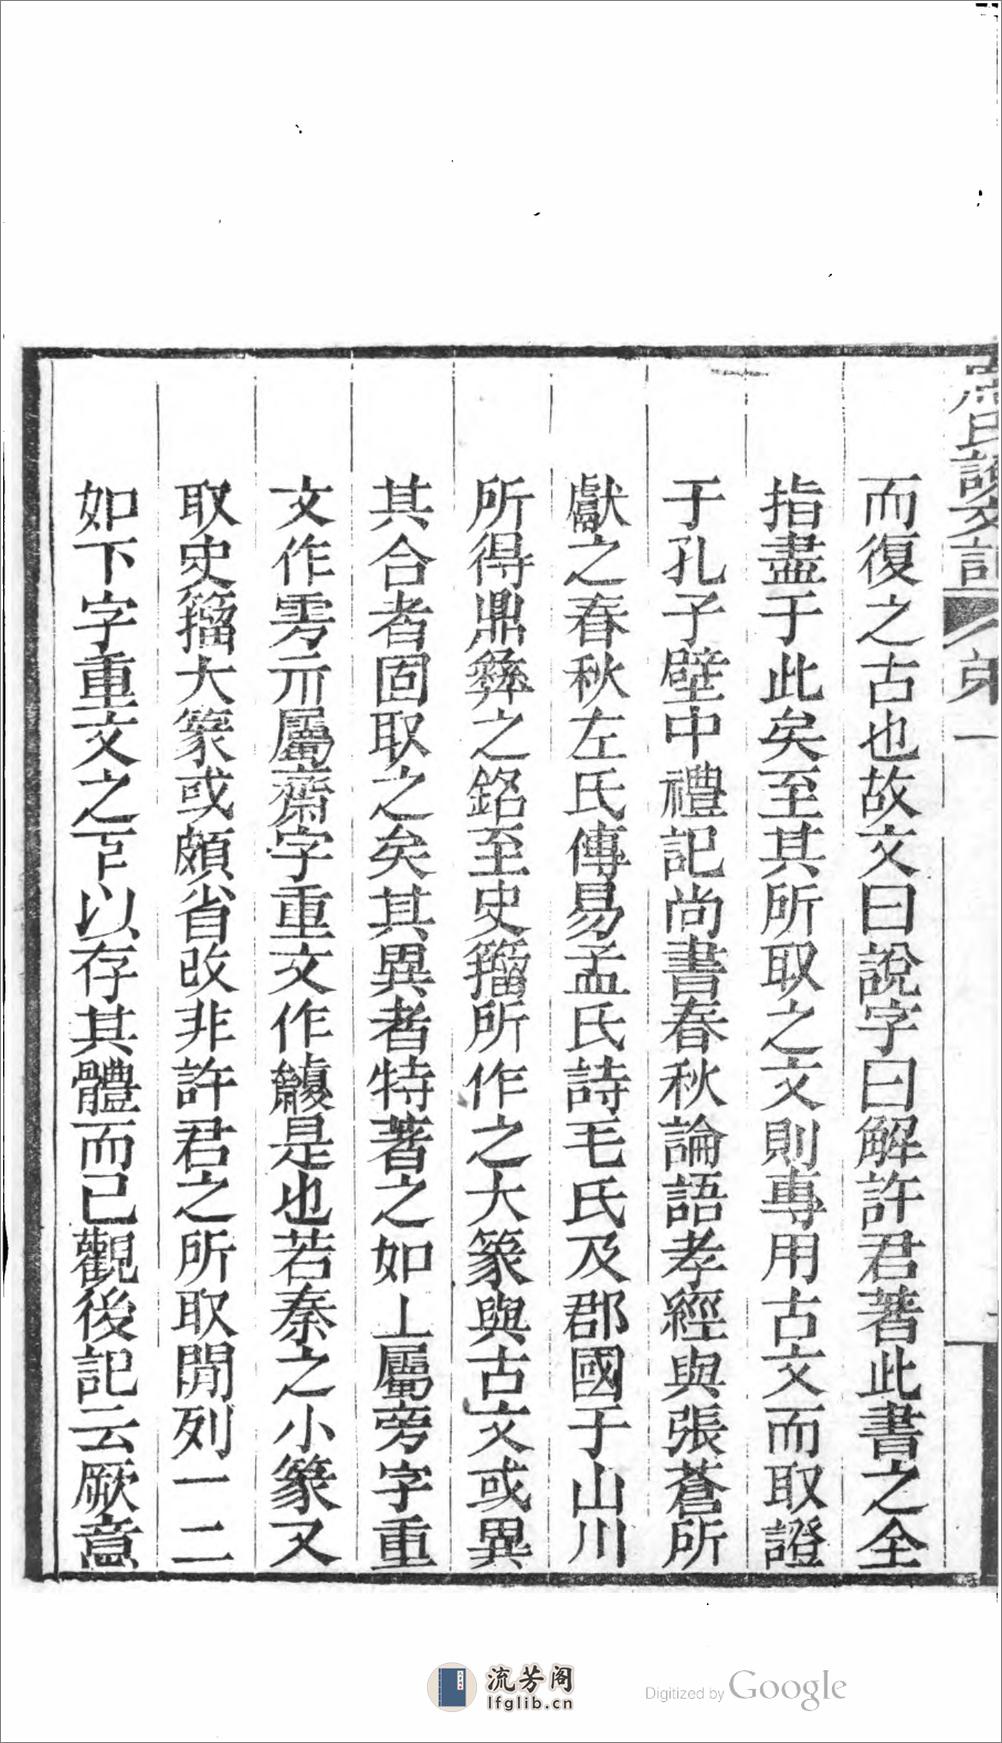 席氏讀說文記 第一
而復之古也故文曰說字曰解許君著此書之全
指盡于此矣至其所取之文則專用古文而取證
于孔子壁中禮記尚書春秋論語孝經與張蒼所
獻之春秋左氏傳易孟氏詩毛氏及郡國于山川
所得鼎彝之銘至史籀所作之大篆與古文或異
其合者固取之矣其異者特著之如丄屬旁字重
文作雱亓屬齋字重文作是也若秦之小篆又
取史籀大篆或頗省改非許君之所取閒列一二
如下字重文之以存其體而已觀後記云厥意
流芳阁
lfglib.cn
Digitized by Google